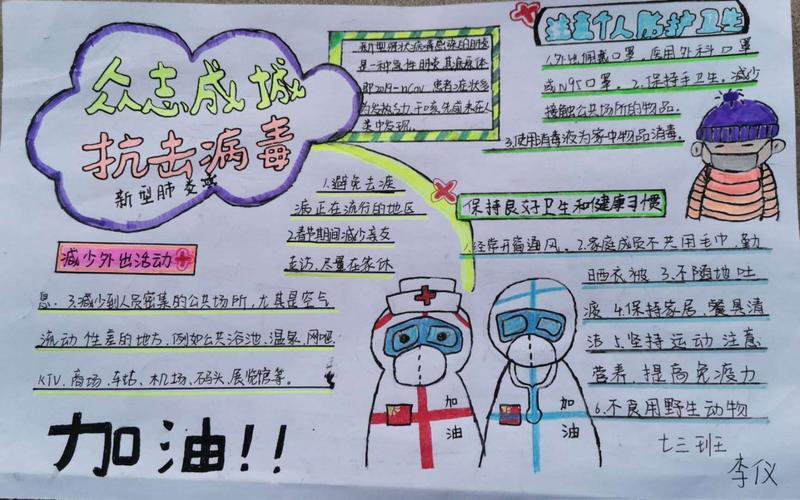 众志成城
抗击病毒
新型肺炎
新型冠状病毒感染的肺炎
是一种急性肺炎 其病原体
即2019-nCoV 患者症状多
为发热乏力、干咳,先前未在人
类中发现。
注意个人防护卫生
1.外出佩戴口罩,医用外科口罩
或N95口罩。2.保持手卫生。减少
接触公共场所的物品。
3.使用消毒液为家中物品消毒。
减少外出活动
1.避免去疫
病正在流行的地区
2.春节期间减少亲友
走访,尽量在家休
息. 3.减少到人员密集的公共场所,尤其是空气
流动性差的地方,例如公共浴池、温泉、网吧
KTV、商场、车站、机场、码头、展览馆等。
保持良好卫生和健康习惯
1.经常开窗通风。2.家庭成员不共用毛巾,勤
晒衣被 3.不随地吐
痰 4.保持家居、餐具清
洁 5.坚持运动 注意
营养,提高免疫力
6.不食用野生动物
加油
加油
加油!!
七三班
李仪